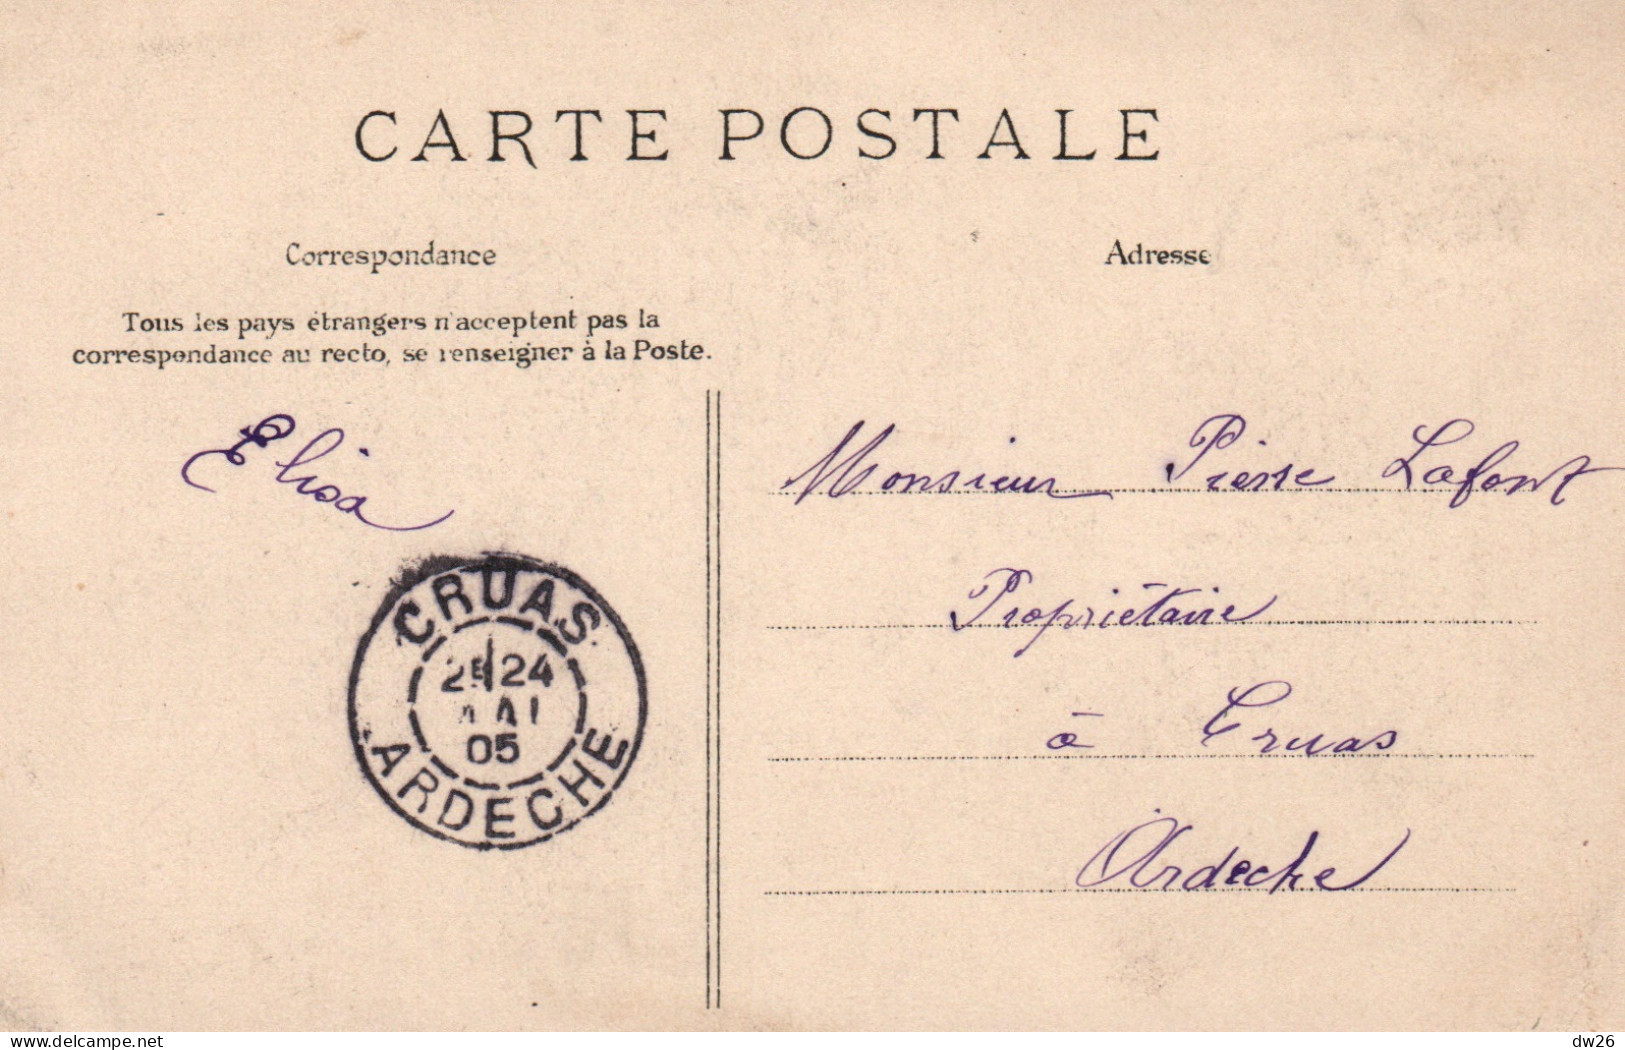 CARTE POSTALE
Correspondance
Tous les pays étrangers n'acceptent pas la
correspondance au recto, se renseigner à la Poste.
Elisa
CRUAS
24
MAI
05
ARDECHE
Adresse
Monsieur Pierre Lafont
Propriétaire
à Cruas
Ardeche
delcampe.net
dw26